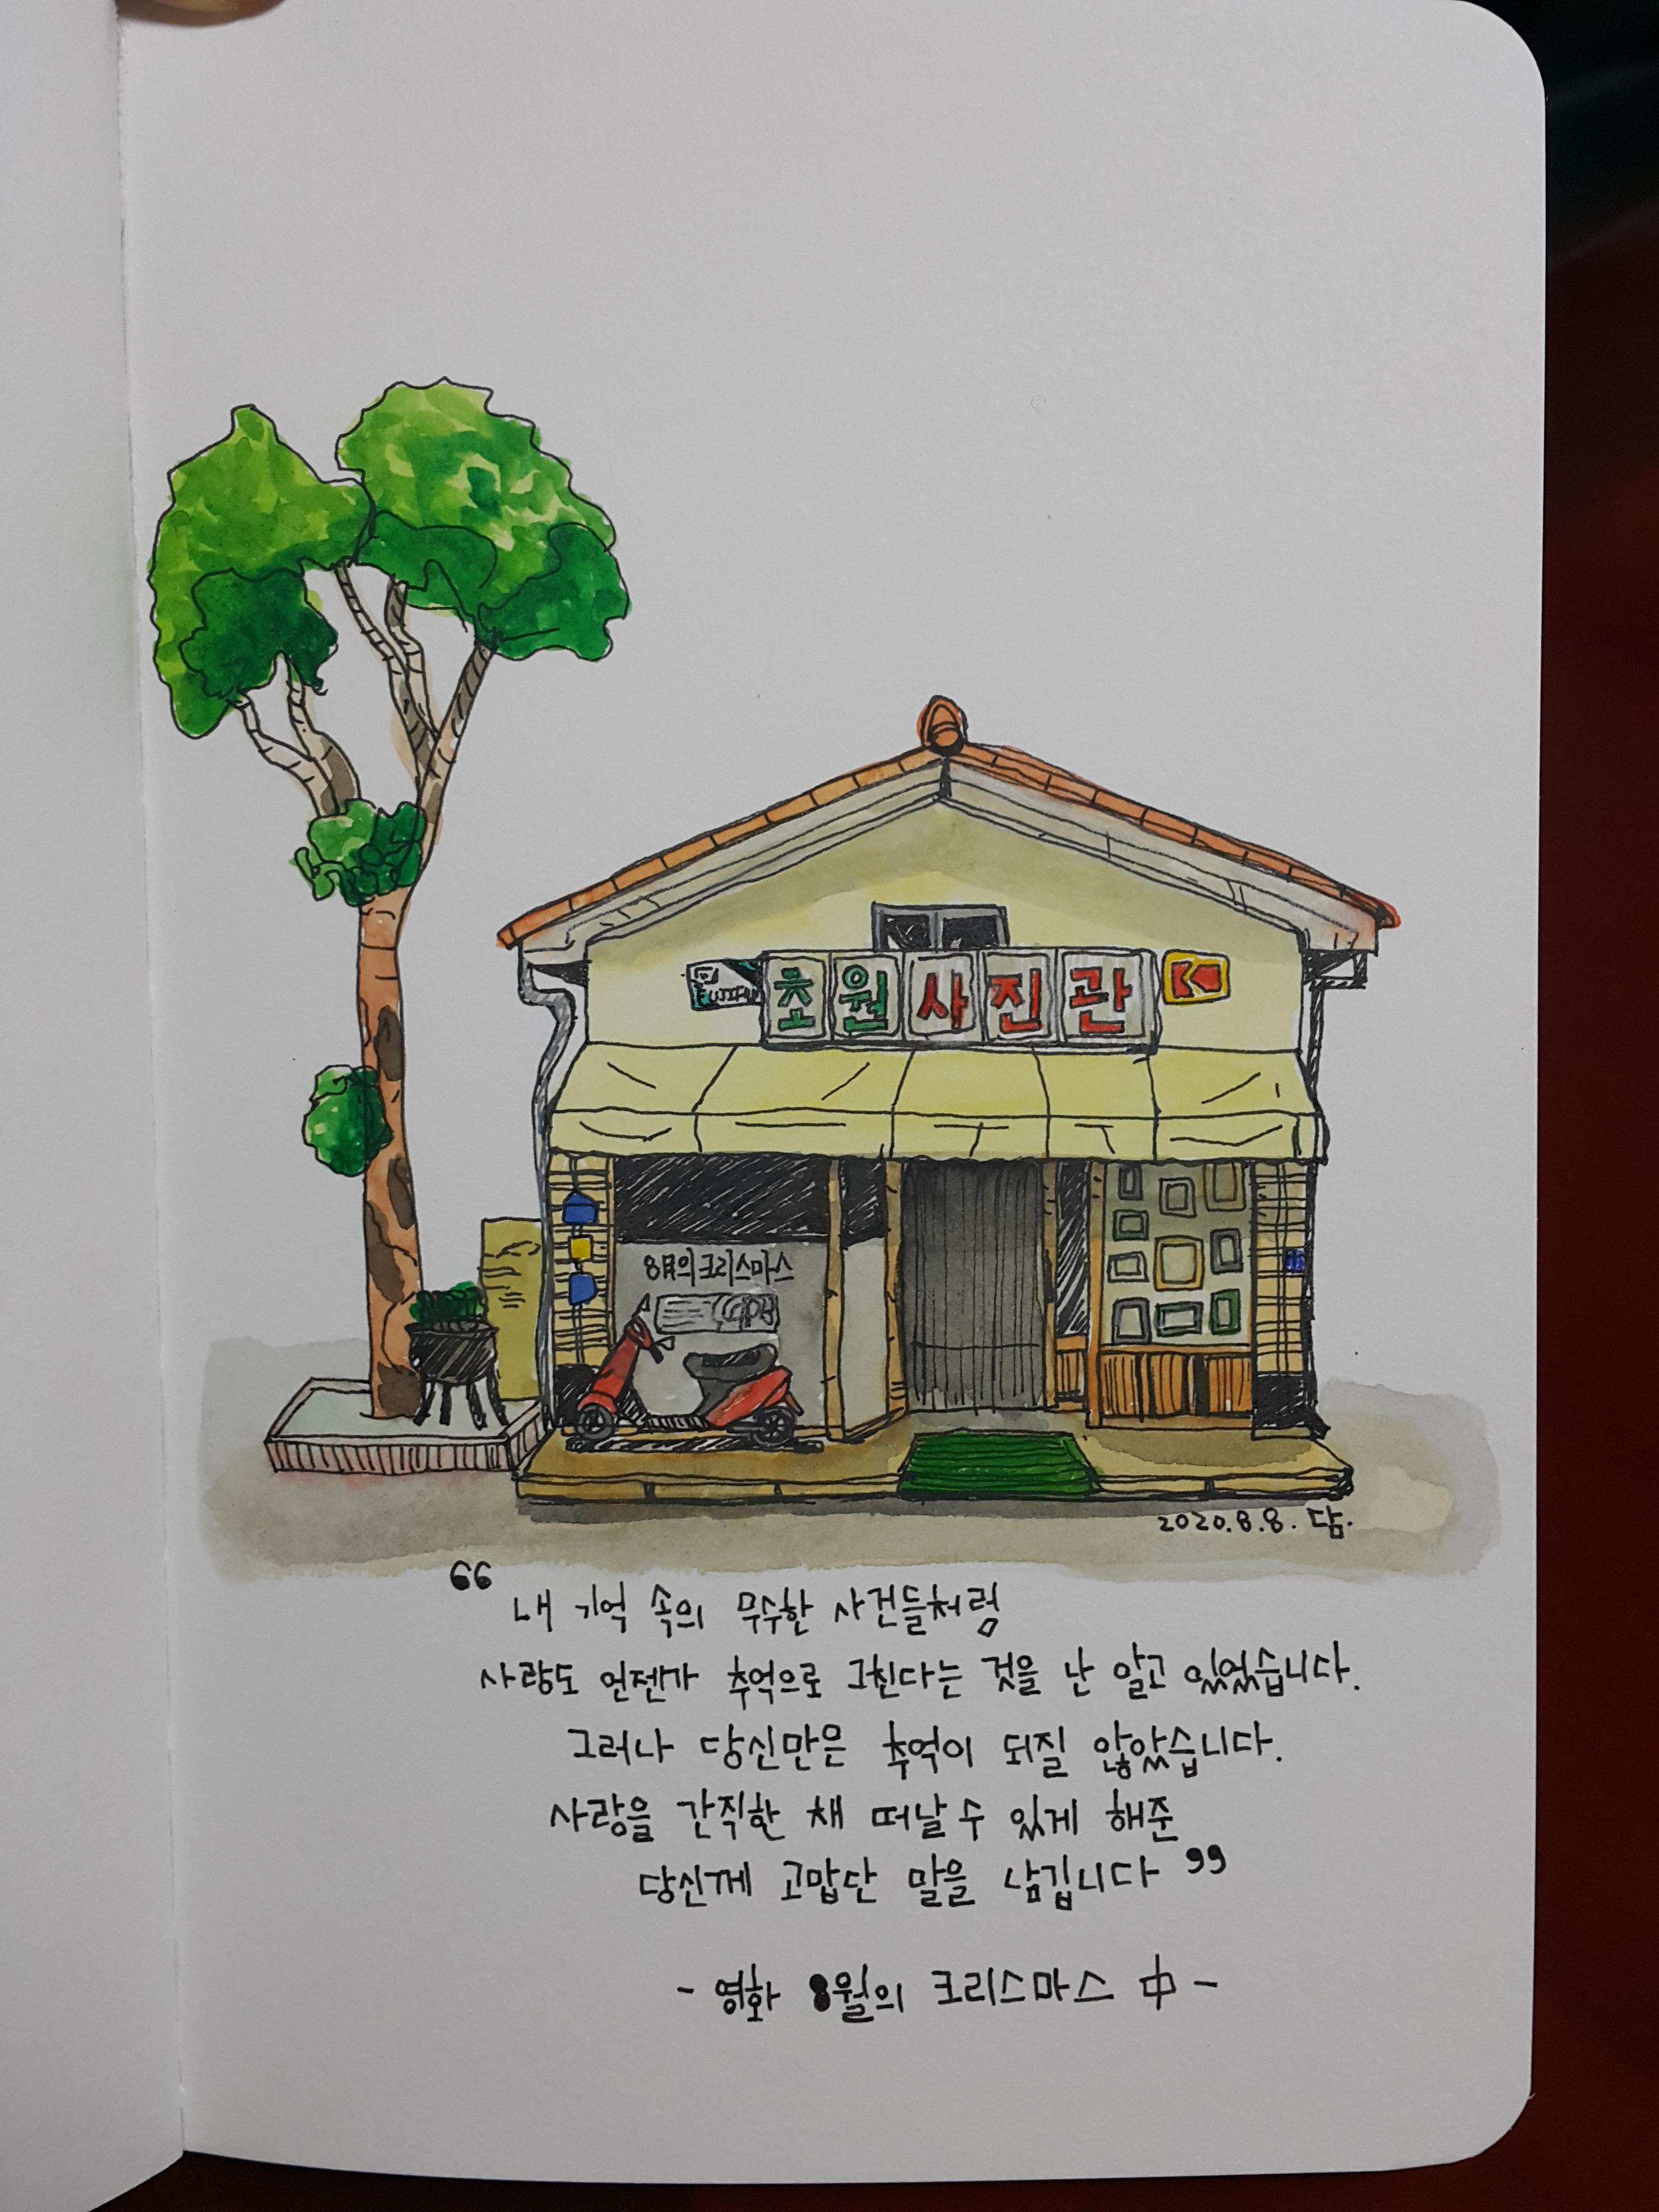 초원사진관
8月의 크리스마스
2020.8.8. 담.
“ 내 기억 속의 무수한 사건들처럼
사랑도 언젠가 추억으로 그친다는 것을 난 알고 있었습니다.
그러나 당신만은 추억이 되질 않았습니다.
사랑을 간직한 채 떠날 수 있게 해준
당신께 고맙단 말을 남깁니다 ”
- 영화 8월의 크리스마스 中 -